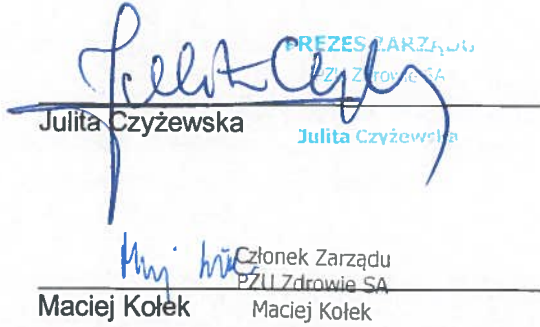 PREZES ZARZĄDU
PZU Zdrowie SA
Julita Czyżewska
Julita Czyżewska
Członek Zarządu
PZU Zdrowie SA
Maciej Kołek
Maciej Kołek